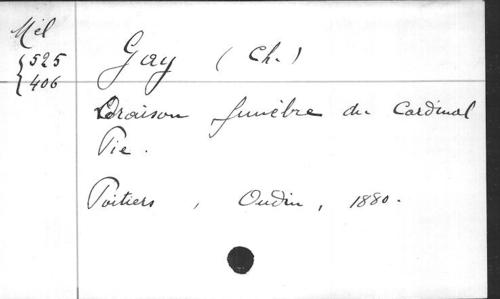 Mél
{525
{406
Gay (Ch.)
Oraison funèbre du Cardinal
Pie.
Poitiers, Oudin, 1880.